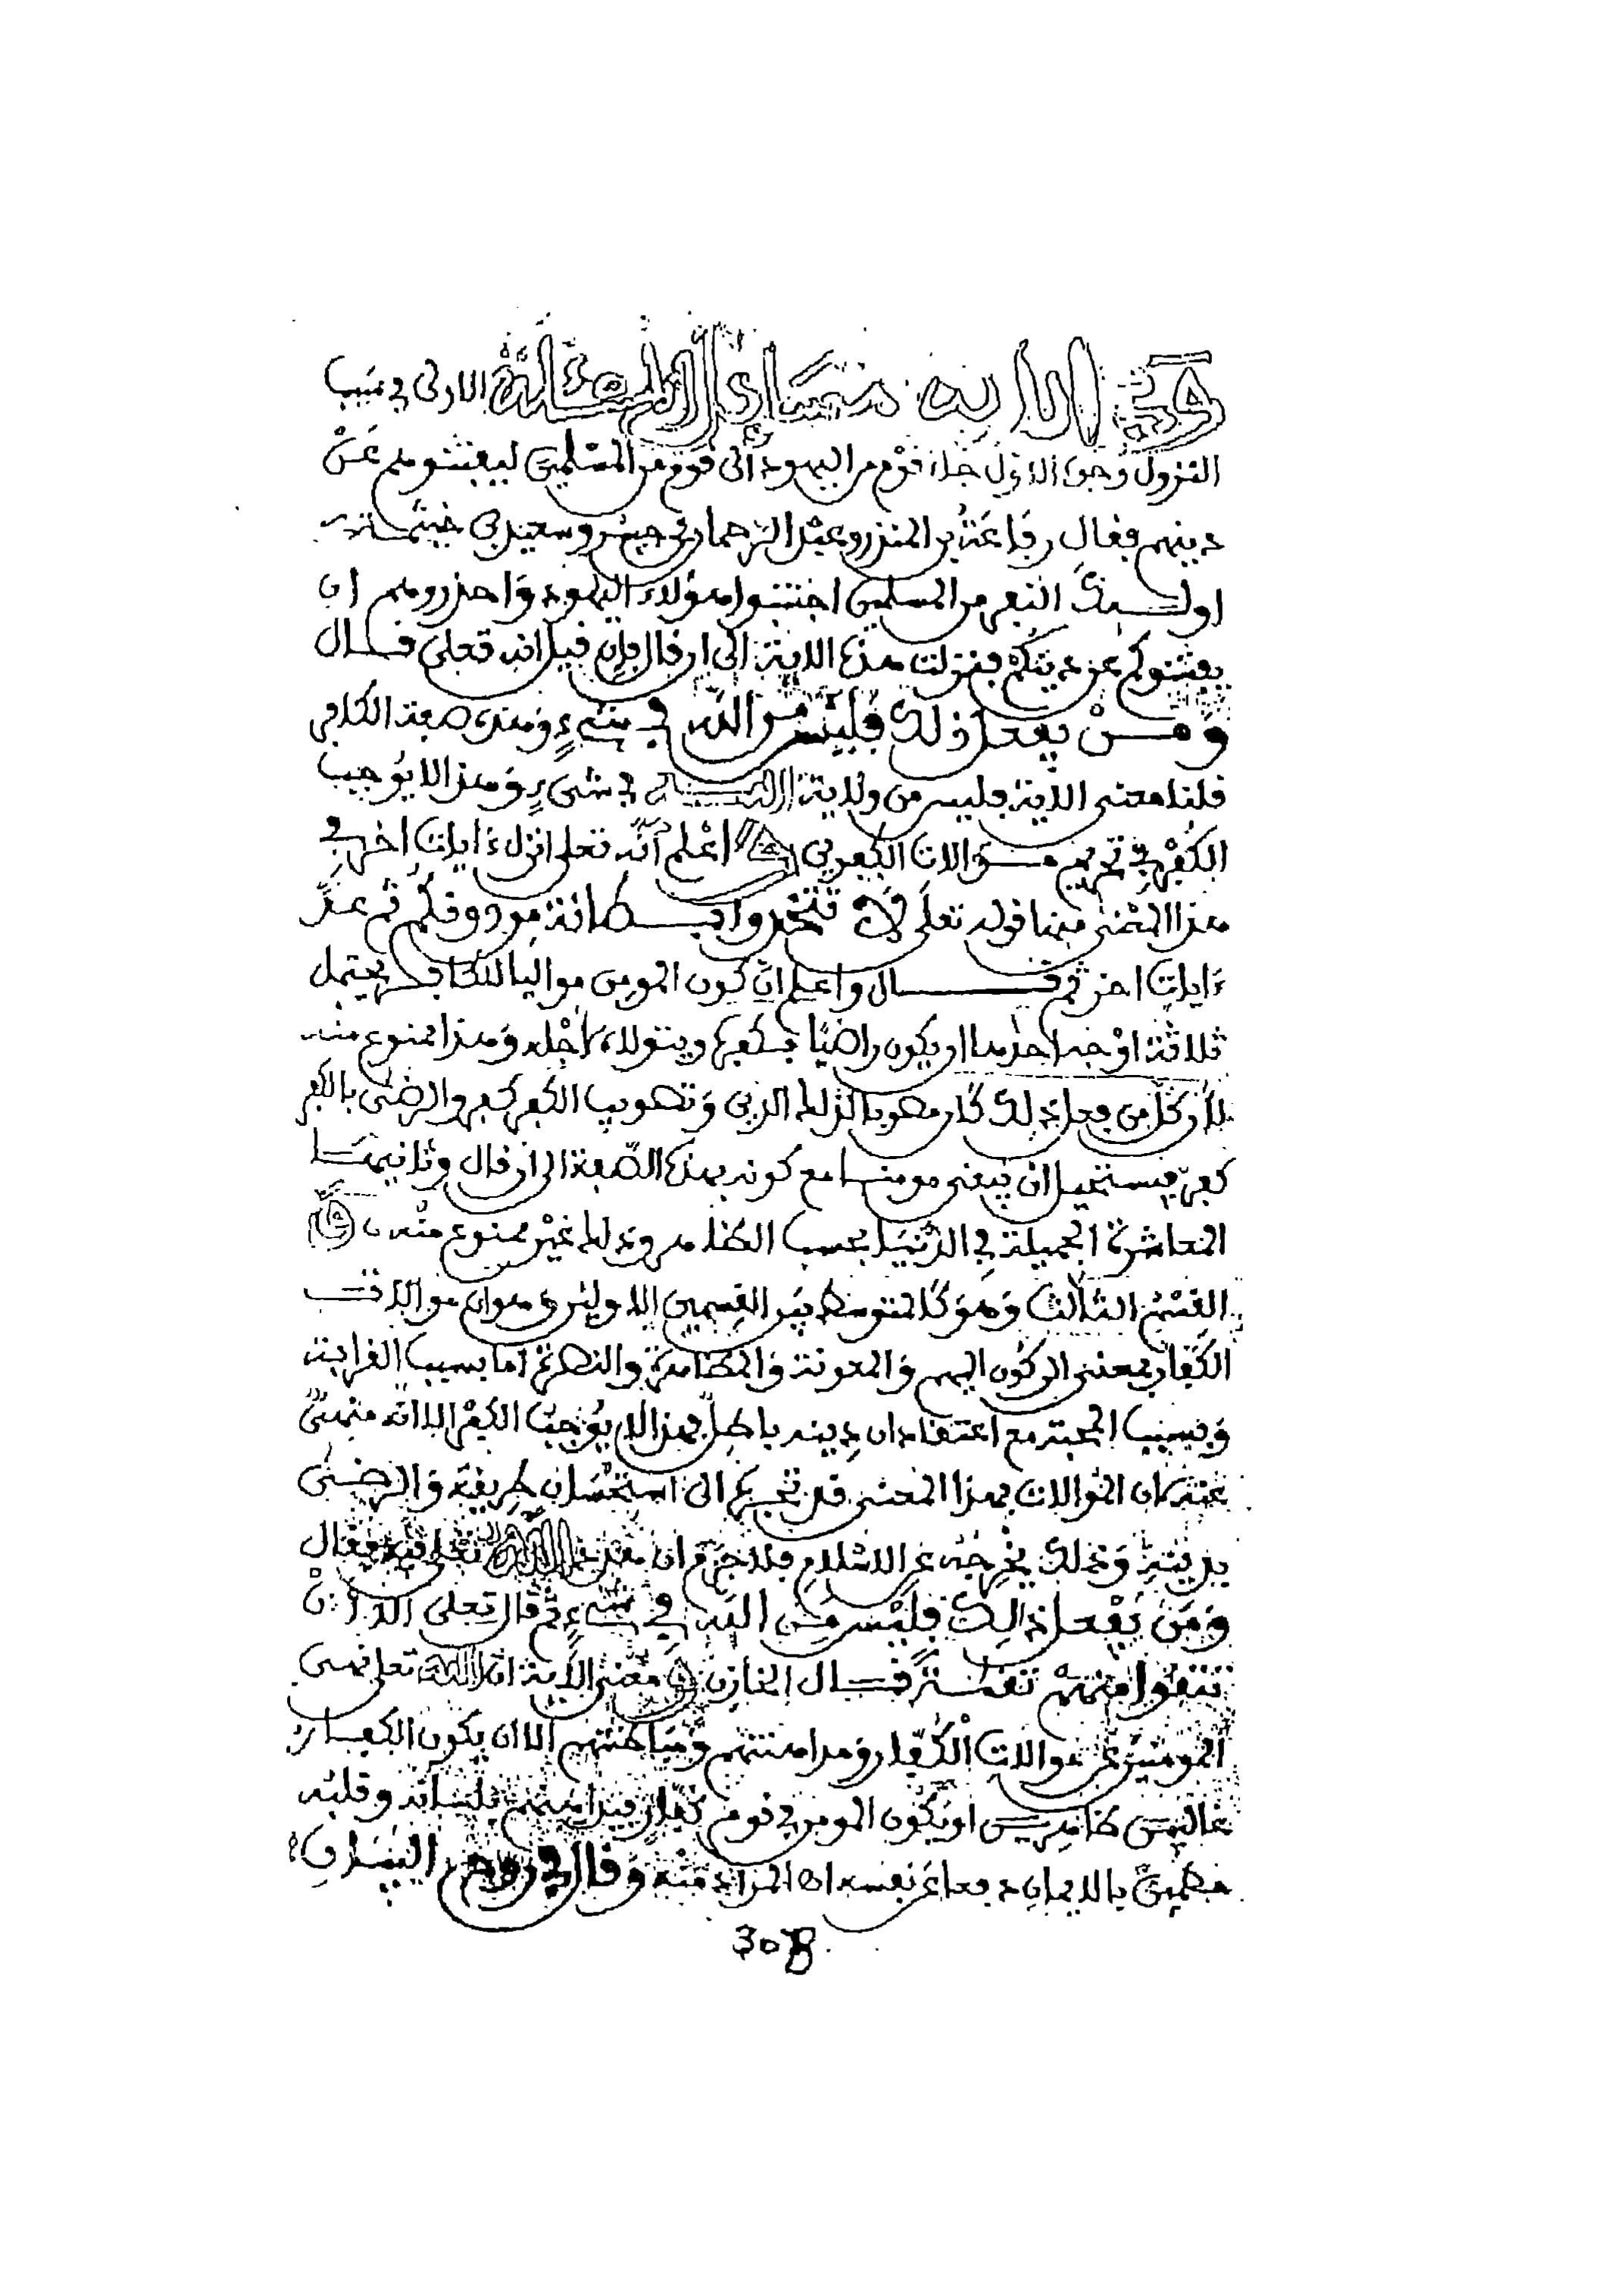 وفي الاية مسائل المسئلة الاولى في سبب
النزول وجوه الاول جاء قوم من اليهود الى قوم من المسلمين ليفتنوهم عَنْ
دينهم فقال رفاعة بن المنذر وعبد الرحمان بن جبير وسعيد بن خيثمة
اولئك النفر من المسلمين اجتنبوا هؤلاء اليهود وَاحذروهم ان
يفتنوكم عن دينكم فنزلت هذه الاية الى ان قال فإن قيل انه تعلى قال
وَمَنْ يفعل ذلك فليس من الله في شيءٍ وهذه صفة الكافر
قلنا معنى الاية فليس من ولاية الله في شيءٍ وَهذا لا يوجب
الكفر في تحريم موالات الكفرين اعْلم أنّه تعلى انزل ءايات اخر في
هذا المعْنى منها قوله تعلَى لَا تتخذوا بطانة من دونكم ثم عدّ
ءايات اخر ثم قال واعلم انّ كون المومن مواليا للكافر يحتمل
ثلاثة اوْجه احدها ان يكون راضيًا بكفره ويتولاه لاجْله وَهذا ممنوع منه
لأن كلّ من فعل ذلك كان مصوبا لذلك الدين وَتصويب الكفر كفر والرضى بالكفر
كفر فيستحيل ان يبقى مومنا مع كونه بهذه الصّفة الى ان قال وثانيهما
المعاشرة الجميلة في الدّنيَا بحسب الظاهر وذلك غيْر ممنوع منْه و
القسْم الثالث وَهوَ كالمتوسط بيْن القِسمين الاوليْن هو ان موالات
الكفّار بمعنى الركُون اليهم وَالمعونة وَالمظاهرة والنصْرة اما بسبب القرابة
وَبسبب المحبة مع اعتقاد ان دِينه باطِلٌ فهذا لا يُوجبُ الكفْر الا انّه منهىٌّ
عنه لان المُوالات بهذا المعنى قد تجره الى استحْسَان طرِيقته وَالرضى
بدِينهِ وَذلك يخْرِجُه عن الاسْلام فلا جَرَم ان هدد الله تعلى فيه فقال
وَمَن يَفْعل ذالِك فليْس من الله في شيءٍ ثم قال تعلى الا أن
تتقوا منهمْ تقىةً قال الخازن و معْنى الاية انّ الله تعلى نهى
المومنين عن موالات الْكُفّار وَمداهنتهم وَمبَاطنتهم الا ان يكون الكفار
غالبين ظاهرين اوْ يكُون المومن في قوم كفّار فيداهنهم بلسانه وقلبُه
مطمئنٌّ بالايمان دفعا عن نفسه اه المراد منْه وَقال في روح البَيَان
308